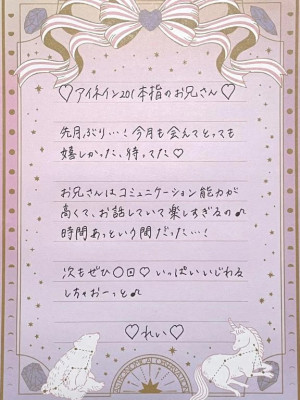 ♡アイネイン201 本指のお兄さん♡
先月ぶり…！今月も会えてとっても
嬉しかった、待ってた♡
お兄さんはコミュニケーション能力が
高くて、お話していて楽しすぎるの♪
時間あっという間だった…！
次もぜひ〇回♡いっぱいいじわる
しちゃおーっと♪
♡れい♡